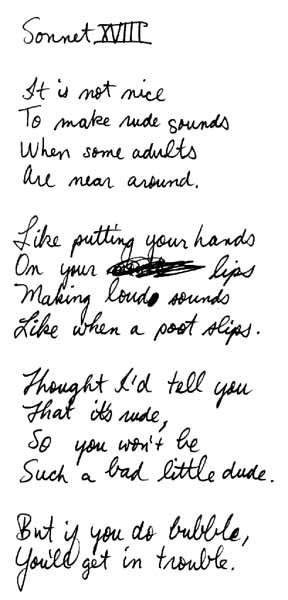 Sonnet XVIII
It is not nice
To make rude sounds
When some adults
Are near around.
Like putting your hands
On your lips
Making loud sounds
Like when a poot slips.
Thought I'd tell you
That it's rude,
So you won't be
Such a bad little dude.
But if you do bubble,
You'll get in trouble.